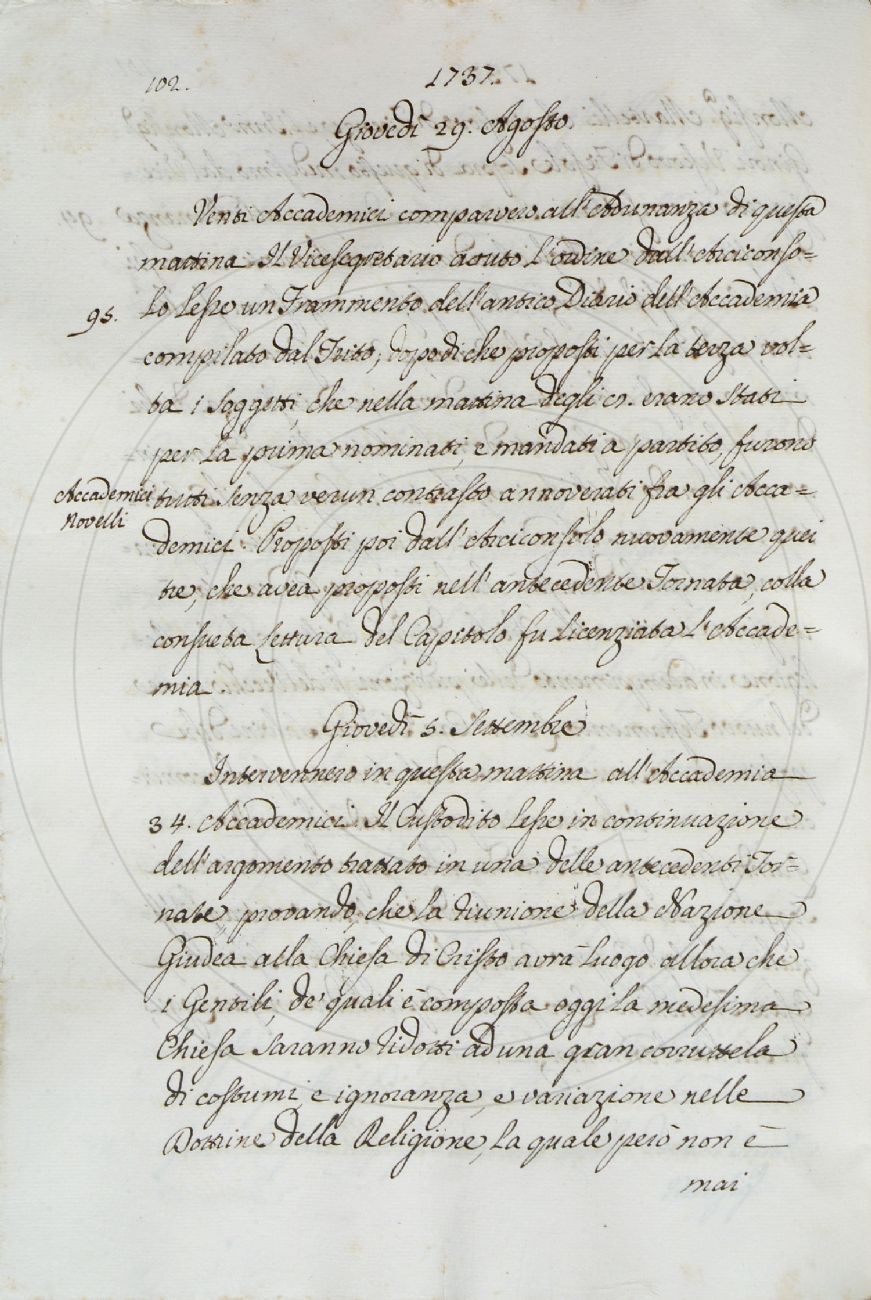 102.
1737.
Giovedì 29. Agosto.
Venti Accademici comparvero all'Adunanza di questa
mattina. Il Vicesegretario avuto l'ordine dall'Arciconso=
lo lesse un Frammento dell'antico Diario dell'Accademia
95.
compilato dal Trito, dopodiche proposti per la terza vol=
ta i soggetti, che nella mattina degli 11. erano stati
per la prima nominati, e mandati a partito, furono
Accademici
Novelli
tutti senza verun contrasto annoverati fra gli Acca=
demici. Proposti poi dall'Arciconsolo nuovamente quei
tre, che avea proposti nell'antecedente Tornata, colla
consueta Lettura del Capitolo fu licenziata l'Accade=
mia.
Giovedì 5. Settembre
Intervennero in questa mattina all'Accademia
34. Accademici. Il Custodito lesse in continuazione
dell'argomento trattato in una delle antecedenti Tor=
nate, provando, che la riunione della Nazione
Giudea alla Chiesa di Cristo avrà luogo allora che
i Gentili, de' quali è composta oggi la medesima
Chiesa saranno ridotti ad una gran corruttela
di costumi, e ignoranza, e variazione nelle
Dottrine della Religione, la quale però non è
mai